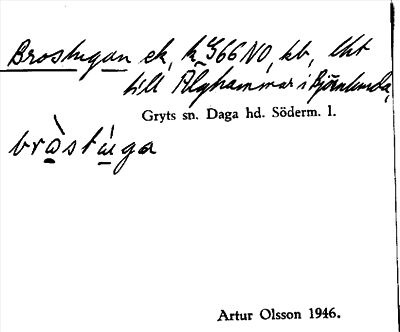 Brostugan ek, k 566 NO, kb, Uht
till Älghammar i Björnlunda,
Gryts sn. Daga hd. Söderm. l.
bròstúga
Artur Olsson 1946.